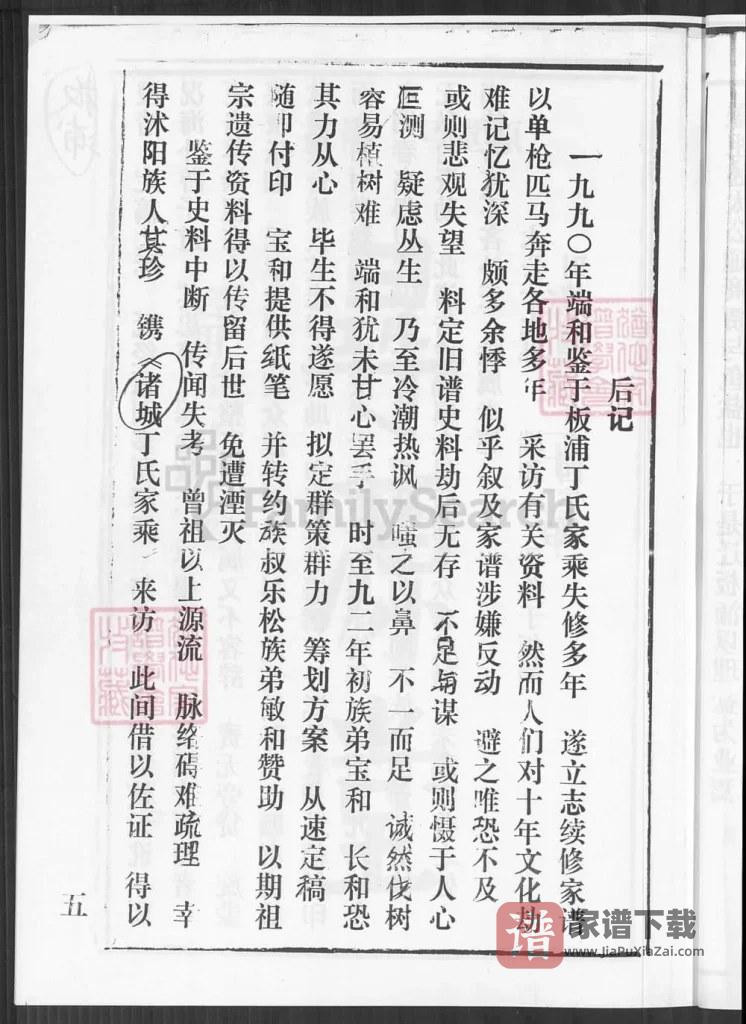 后记
一九九〇年端和鉴于板浦丁氏家乘失修多年 遂立志续修家谱
以单枪匹马奔走各地多年 采访有关资料 然而人们对十年文化劫
难记忆犹深 颇多余悸 似乎叙及家谱涉嫌反动 避之唯恐不及
或则悲观失望 料定旧谱史料劫后无存 不足与谋 或则慑于人心
叵测 疑虑丛生 乃至冷潮热讽 嗤之以鼻 不一而足 诚然伐树
容易植树难 端和犹未甘心罢手 时至九二年初族弟宝和 长和恐
其力从心 毕生不得遂愿 拟定群策群力 筹划方案 从速定稿
随即付印 宝和提供纸笔 并转约族叔乐松族弟敏和赞助 以期祖
宗遗传资料得以传留后世 免遭湮灭
鉴于史料中断 传闻失考 曾祖以上源流 脉络碍难疏理 幸
得沭阳族人其珍 镌《诸城丁氏家乘》 来访 此间借以佐证 得以
五
FamilySearch
谱 家谱下载
www.JiaPuXiaZai.com